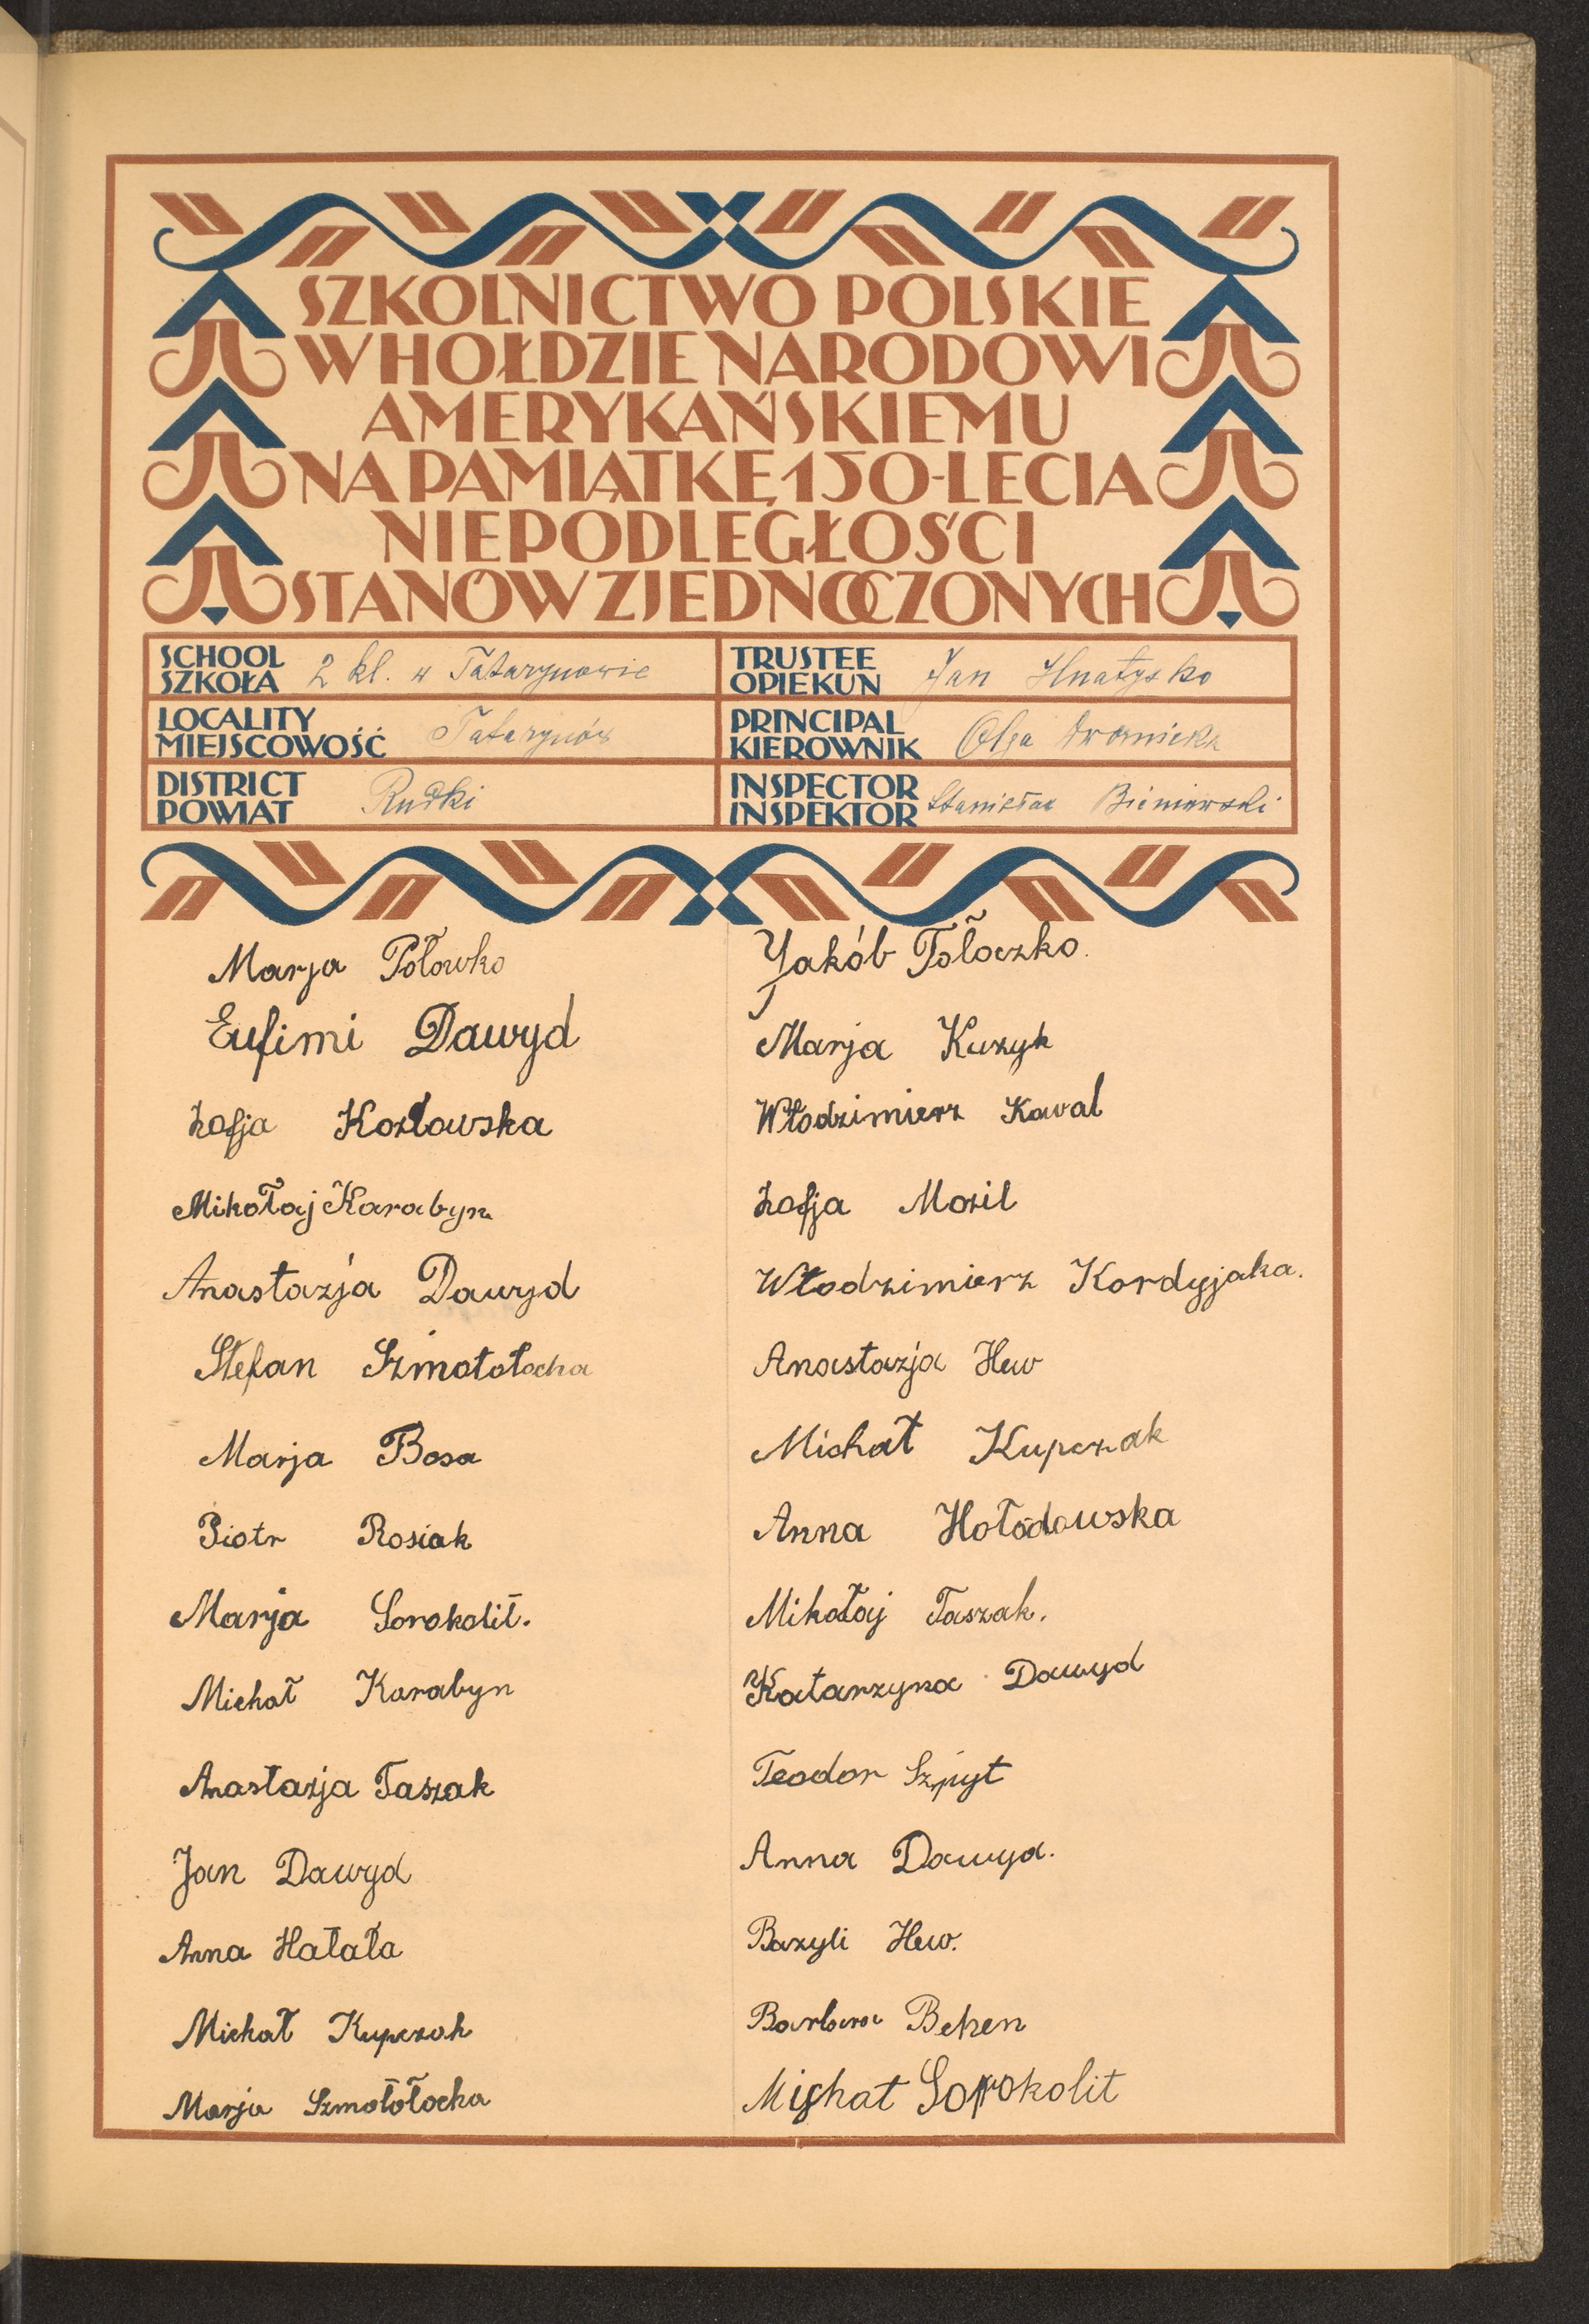 SZKOLNICTWO POLSKIE
W HOŁDZIE NARODOWI
AMERYKAŃSKIEMU
NA PAMIĄTKĘ 150-LECIA
NIEPODLEGŁOŚCI
STANÓW ZJEDNOCZONYCH
SCHOOL
SZKOŁA 2 kl. w Tatarynowie
TRUSTEE
OPIEKUN Jan Hnatyszko
LOCALITY
MIEJSCOWOŚĆ Tatarynów
PRINCIPAL
KIEROWNIK Olga
DISTRICT
POWIAT Rudki
INSPECTOR
INSPEKTOR Stanisław Bieniowski
Marja Połowko
Eufimi Dawyd
Zofja Kozłowska
Mikołaj Karabyn
Anastazja Dawyd
Stefan Szmołołocha
Marja Bosa
Piotr Rosiak
Marja Sorokolit.
Michał Karabyn
Anastazja Taszak
Jan Dawyd
Anna Hałała
Michał Kupczak
Marja Szmołołocha
Jakób Tołoczko.
Marja Kuzyk
Włodzimierz Kowal
Zofja Mozil
Włodzimierz Kordyjaka.
Anastazja Hew
Michał Kupczak
Anna Hołodowska
Mikołaj Taszak.
Katarzyna Dawyd
Teodor Szpyt
Anna Dawyd.
Bazyli Hew.
Barbara Behen
Michał Sorokolit